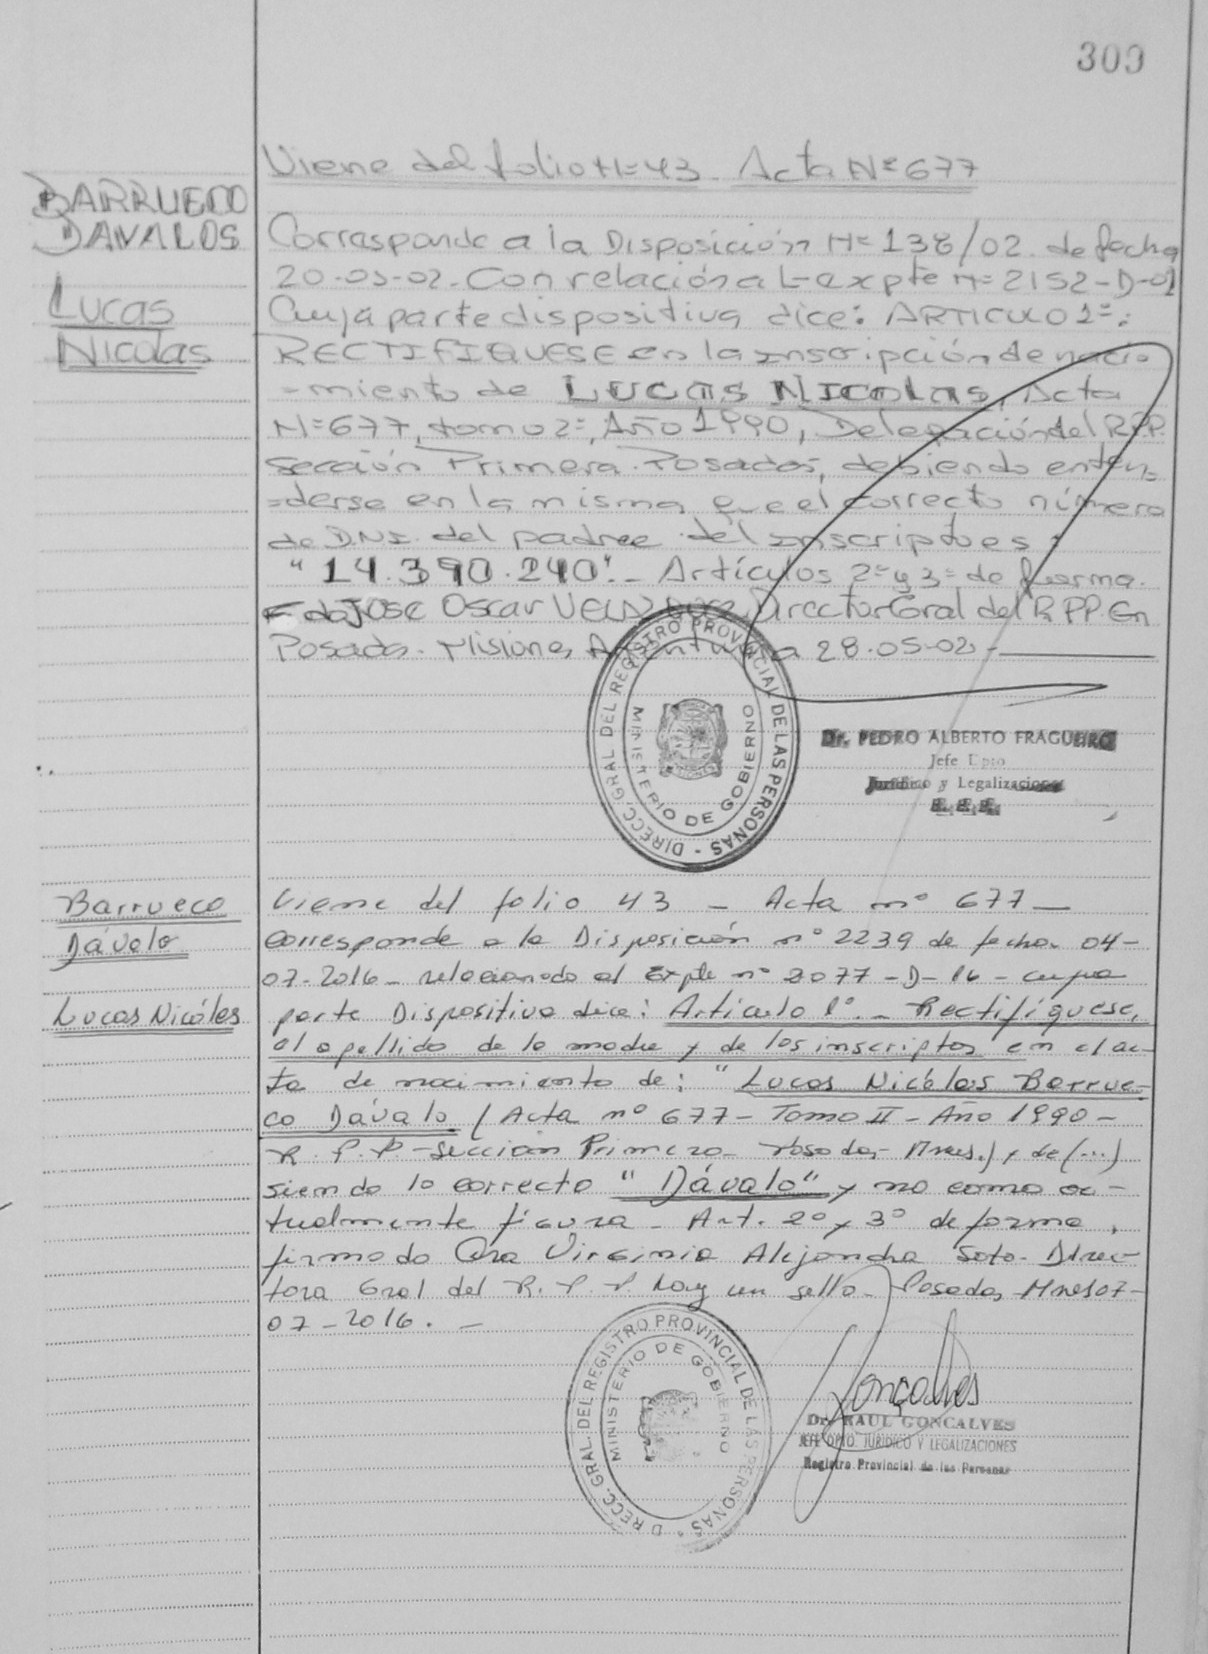 309
Viene del folio Nº 43. Acta Nº 677
BARRUECO
DAVALOS
Lucas
Nicolas
Corresponde a la Disposición Nº 138/02. de fecha
20-05-02. Con relación al expte Nº 2152-D-01
Cuya parte dispositiva dice: ARTICULO 1º:
RECTIFIQUESE en la inscripción de naci
=miento de LUCAS NICOLAS, Acta
Nº 677, tomo 2º, Año 1990, Delegación del R.P.P.
Sección Primera. Posadas, debiendo enten=
=derse en la misma que el correcto número
de D.N.I. del padre del inscripto es:
"14.390.240". Artículos 2º y 3º de forma.
Fdo JOSE Oscar Director Gral del R.P.P. En
Posadas. Misiones Argentina a 28-05-02
DIRECC. GRAL DEL REGISTRO PROVINCIAL DE LAS PERSONAS
MINISTERIO DE GOBIERNO
Dr. PEDRO ALBERTO FRAGUEIRO
Jefe Dpto
Jurídico y Legalizaciones
Barrueco
Dávalo
Lucas Nicólas
Viene del folio 43 - Acta nº 677 -
Corresponde a la Disposición nº 2239 de fecha 04-
07-2016 - relacionado al Expte nº 2077-D-16 - cuya
parte Dispositiva dice: Articulo 1º. - Rectifíquese,
el apellido de la madre y de los inscriptos en el ac-
ta de nacimiento de: "Lucas Nicólas Barrue-
co Dávalo (Acta nº 677 - Tomo II - Año 1990 -
R.P.P - Sección Primera - Posadas - Mnes.) y de (...)
siendo lo correcto "Dávalo" y no como ac-
tualmente figura - Art. 2º y 3º de forma.
firmado Cra Virginia Alejandra Soto - Direc-
tora Gral del R.P.P hay un sello - Posadas, Mnes 07-
07-2016. -
DIRECC. GRAL. DEL REGISTRO PROVINCIAL DE LAS PERSONAS
MINISTERIO DE GOBIERNO
Gonçalves
Dr. RAUL GONCALVES
JEFE DPTO. JURÍDICO Y LEGALIZACIONES
Registro Provincial de las Personas